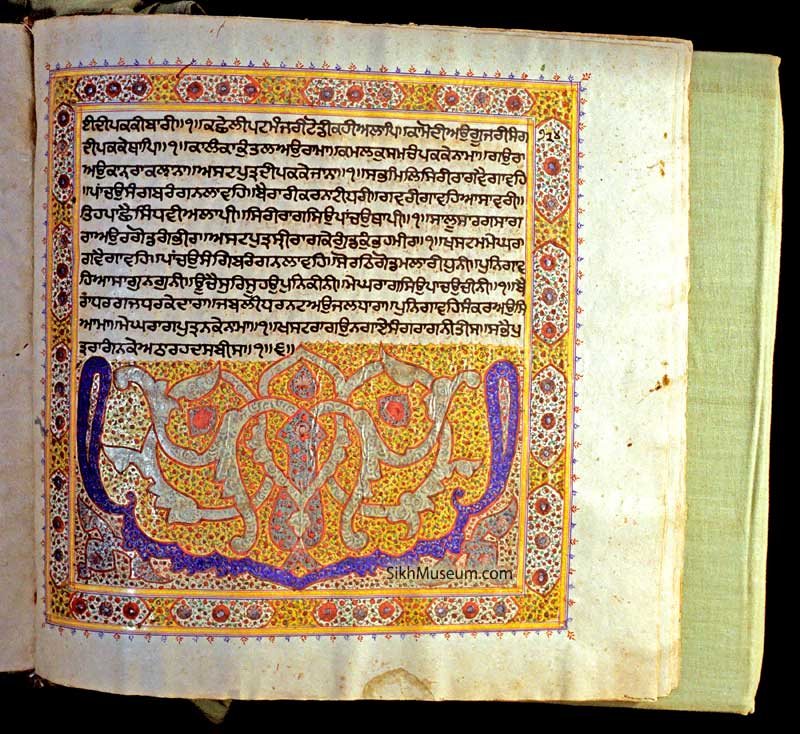 ਈਦੀਪਕਕੀਬਾਰੀ॥੧॥ਕਛੇਲੀਪਟਮੰਜਰੀਟੋਡੀਕਹੀਅਲਾਪਿ॥ਕਾਮੋਦੀਅਉਗੂਜਰੀਸੰਗਿ
੧੧੪
ਦੀਪਕਕੇਥਾਪਿ॥੧॥ਕਾਲੰਕਾਕੁੰਤਲਅਉਰਾਮਾ॥ਕਮਲਕੁਸਮਚੰਪਕਕੇਨਾਮਾ॥ਗਉਰਾ
ਅਉਕਾਨਰਾਕਲ੍ਯਾਨਾ॥ਅਸਟਪੁਤ੍ਰਦੀਪਕਕੇਜਾਨਾ॥੧॥ਸਭਮਿਲਿਸਿਰੀਰਾਗਵੈਗਾਵਹਿ
॥ਪਾਂਚਉਸੰਗਿਬਰੰਗਨਲਾਵਹਿ॥ਬੈਰਾਰੀਕਰਨਾਟੀਧਰੀ॥ਗਵਰੀਗਾਵਹਿਆਸਾਵਰੀ॥
ਤਿਹਪਾਛੈਸਿੰਧਵੀਅਲਾਪੀ॥ਸਿਰੀਰਾਗਸਿਉਪਾਂਚਉਥਾਪੀ॥੧॥ਸਾਲੂਸਾਰਗਸਾਗ
ਰਾਅਉਰਗੋਂਡਗੰਭੀਰ॥ਅਸਟਪੁਤ੍ਰਸ੍ਰੀਰਾਗਕੇਗੁੰਡਕੁੰਭਹਮੀਰ॥੧॥ਖਸਟਮਮੇਘਰਾ
ਗਵੈਗਾਵਹਿ॥ਪਾਂਚਉਸੰਗਿਬਰੰਗਨਲਾਵਹਿ॥ਸੋਰਠਿਗੋਂਡਮਲਾਰੀਧੁਨੀ॥ਪੁਨਿਗਾਵ
ਹਿਆਸਾਗੁਨਗੁਨੀ॥ਊਚੈਸੁਰਿਸੂਹਉਪੁਨਿਕੀਨੀ॥ਮੇਘਰਾਗਸਿਉਪਾਂਚਉਚੀਨੀ॥੧॥ਬੈ
ਰਾਧਰਗਜਧਰਕੇਦਾਰਾ॥ਜਬਲੀਧਰਨਟਅਉਜਲਧਾਰਾ॥ਪੁਨਿਗਾਵਹਿਸੰਕਰਅਉਸਿ
ਆਮਾ॥ਮੇਘਰਾਗਪੁਤ੍ਰਨਕੇਨਾਮਾ॥੧॥ਖਸਟਰਾਗਉਨਗਾਏਸੰਗਿਰਾਗਨੀਤੀਸ॥ਸਭੈਪੁ
ਤ੍ਰਰਾਗੰਨਕੇਅਠਾਰਹਦਸਬੀਸ॥੧॥੬॥
SikhMuseum.com